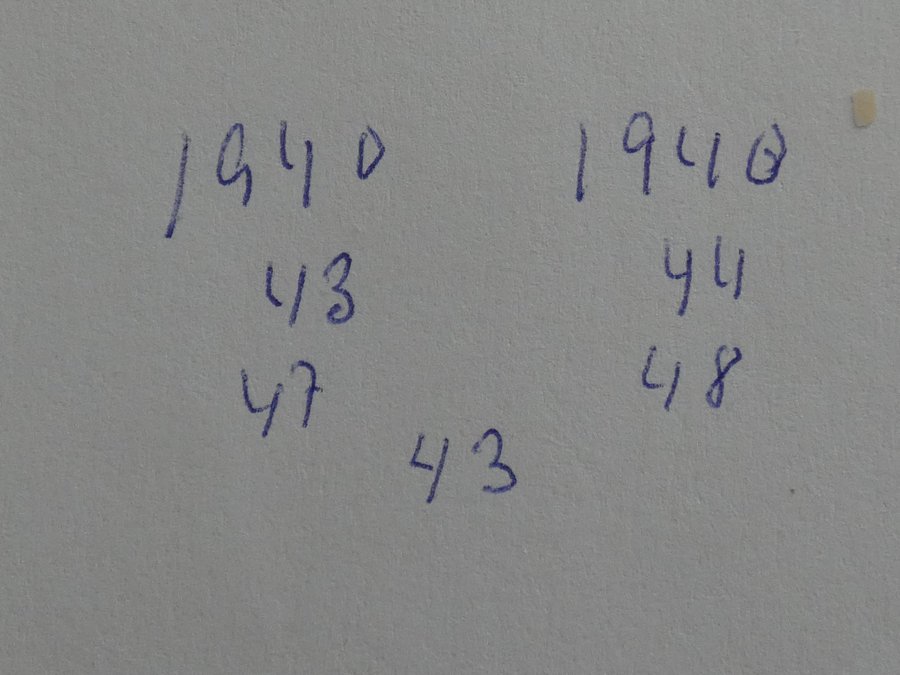 1940 1940
43 44
47 48
43